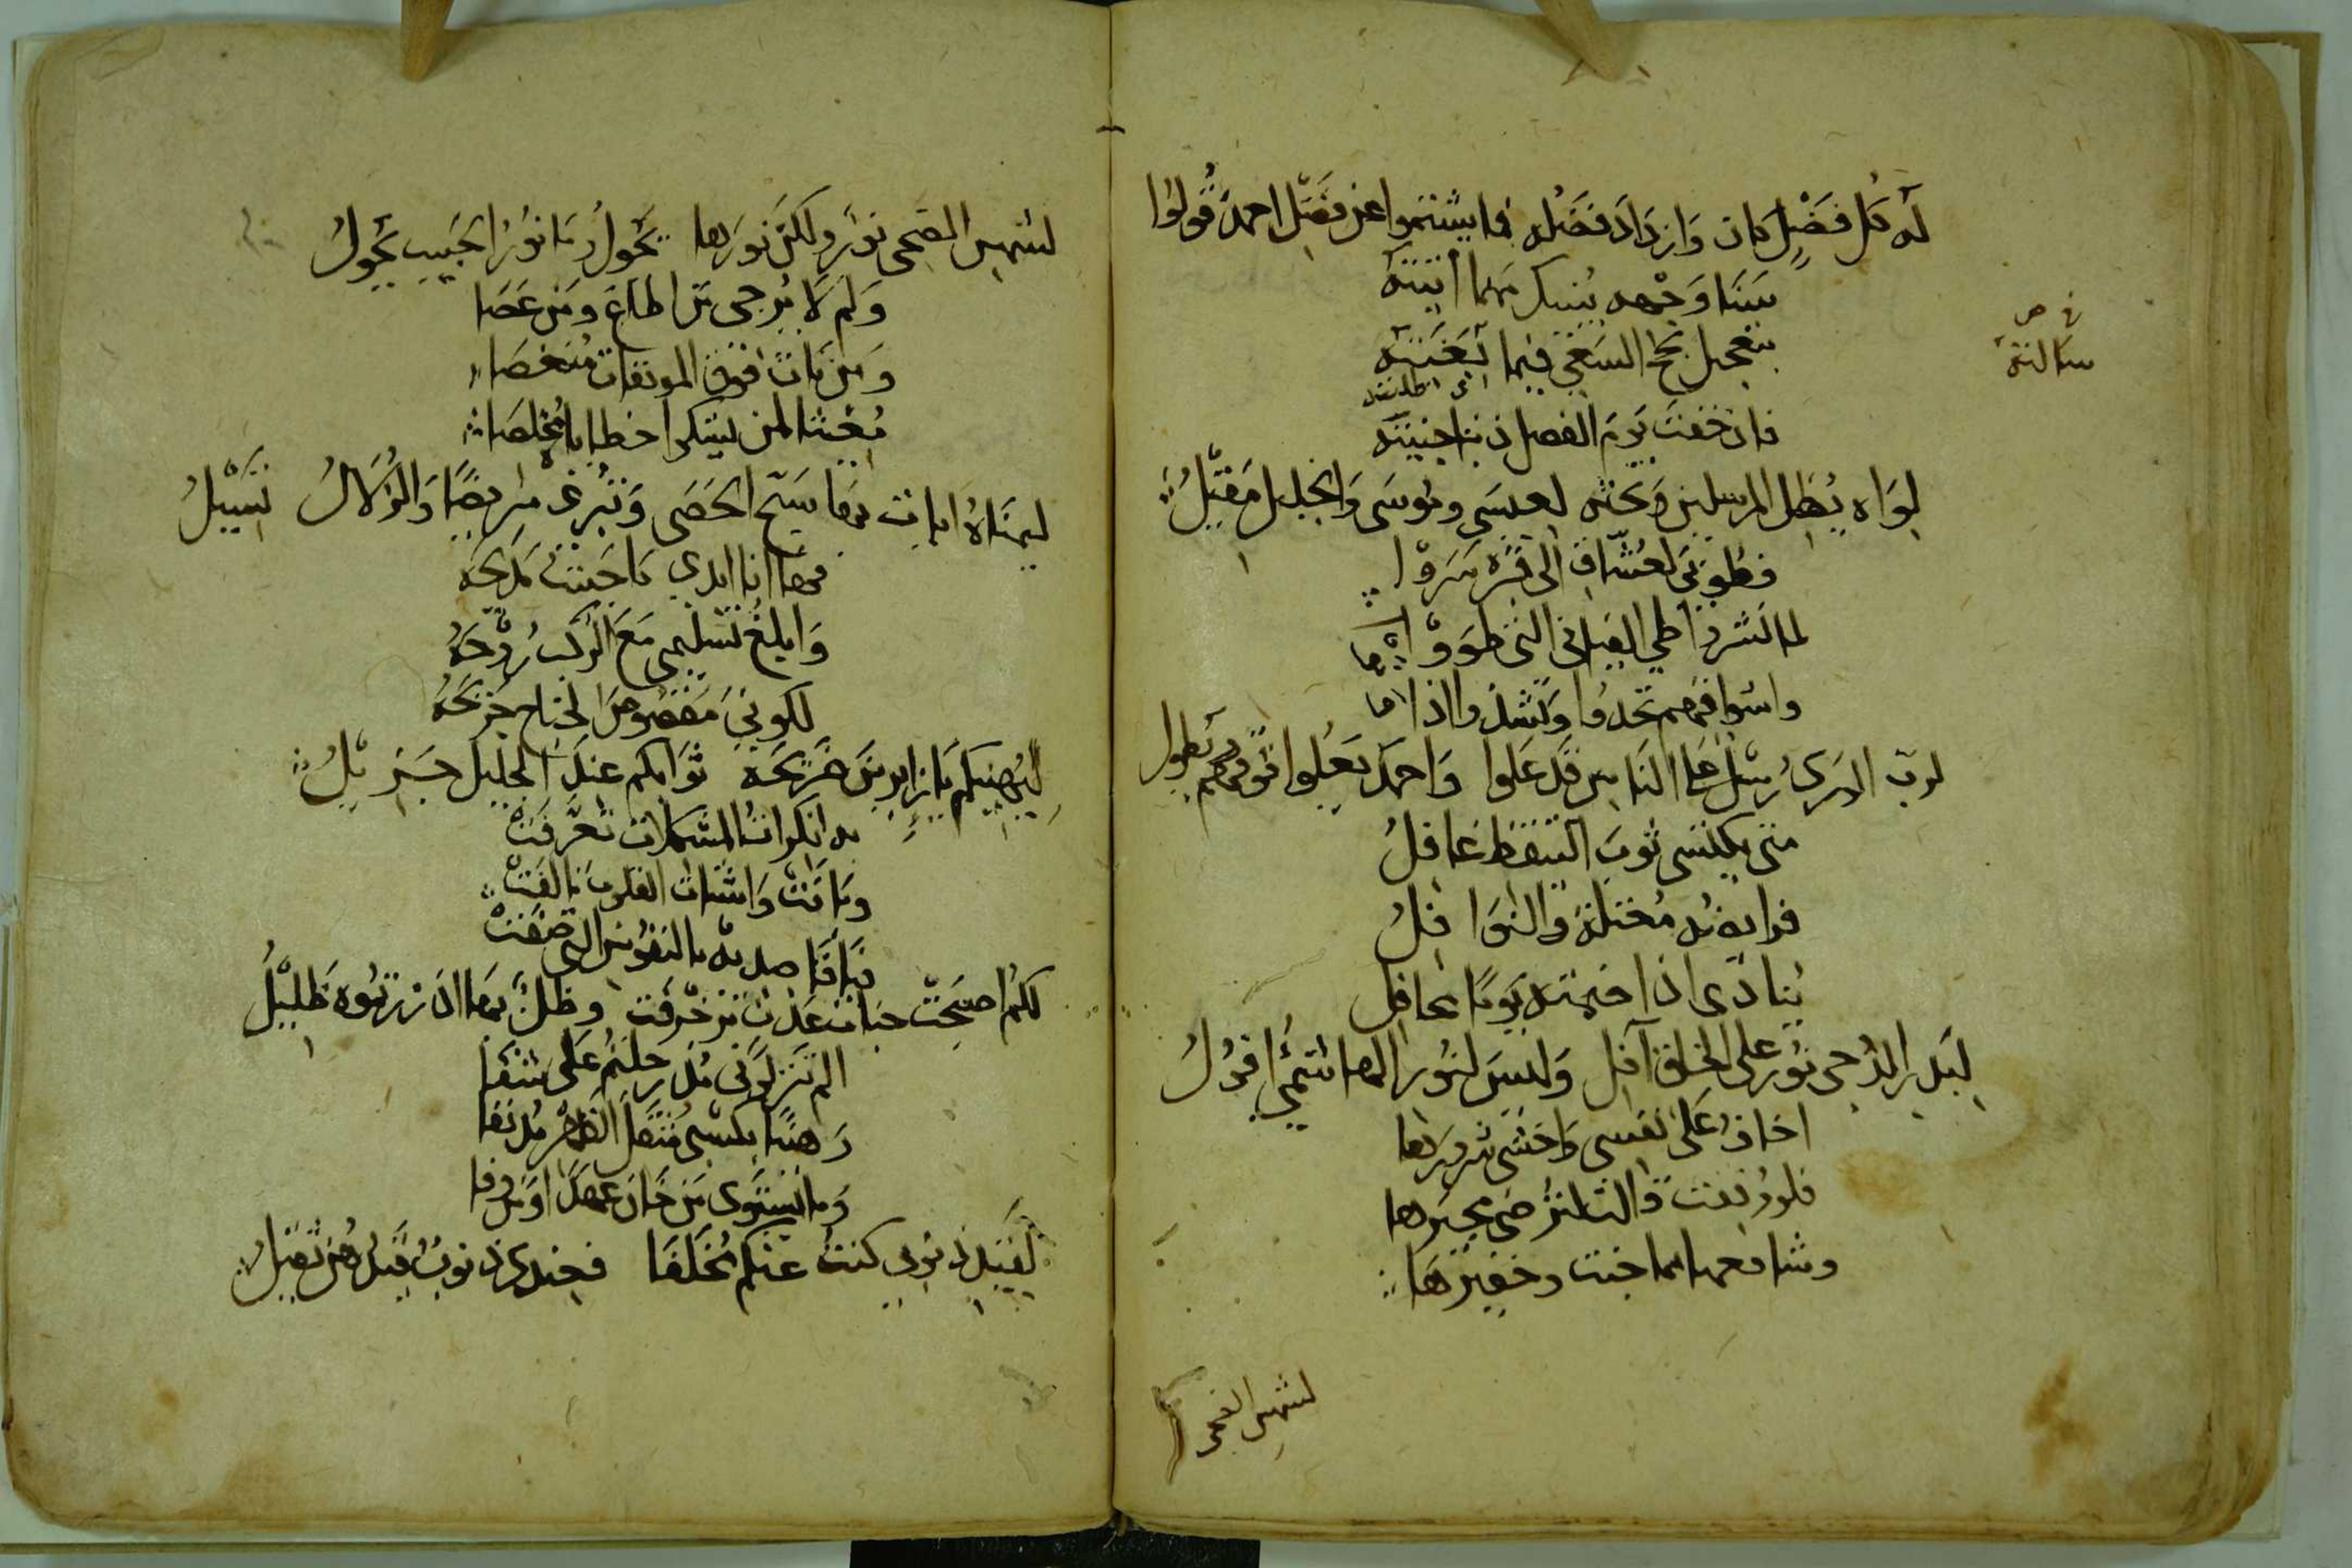 له كل فضل كان وازداد فضله فما شئتموا عن فضل احمد قولوا
سنا وجهه ينبيك مهما أتيته
بتعجيل نجح السعي فيما ابتغيته
اي طلبته
فان خفت يوم الفصل ذنبا جنيته
في ص
سالته
لواه يظل المرسلين وتحته لعيسى وموسى والخليل مقيل
فطوبى لعشاق الى قبره سروا
لما نشروا طي الفيافي التي طووا
واشواقهم تحدوا وتنشد
لرب الورى رسل على الناس قد علوا واحمد يعلوا فوقهم ويطول
متى يكتسي ثوب التيقظ غافل
فرايضه مختلة والنوافل
ينادى اذا ضمته يوما محافل
لبدر الدجى نور على الخلق آفل وليس لنور الهاشمي افول
اخاف على نفسي واخشى شرورها
فلو وفقت قالت لمن ضى مجيرها
وشافعها مما جنت وخفيرها
لشمس الضحى
لشمس الضحى نور ولكن نورها يحول وما نور الحبيب يحول
ولم لا يرجى من اطاع ومن عصا
ومن بات فوق الموبقات منغصا
مغيثا لمن يشكوا خطايا مخلصا
ليمناه ايات بها سبح الحصى وتبرئ مريضا والزلال تسيل
فها انا ابدي ما حييت مديحه
وابلغ تسليمي مع الركب روحه
لكوني مقصوص الجناح جريحه
ليهنيكم يا زايرين ضريحه ثوابكم عند الجليل جزيل
به انكرات المشكلات تعرفت
وبانت واشتات القلوب تالفت
فيا قاصديه بالنفوس التي صفت
لكم اصبحت جنات عدن تزخرفت وظل بها اذ زرتموه ظليل
الم تنزلوني مذ رحلتم على شفا
رهنا بكسبي مثقل الظهر مدنفا
وما يستوى من خان عهدا ومن وفا
لقبل ذنوبي كنت عنكم مخلفا فعندي ذنوب قبلهن ثقيل